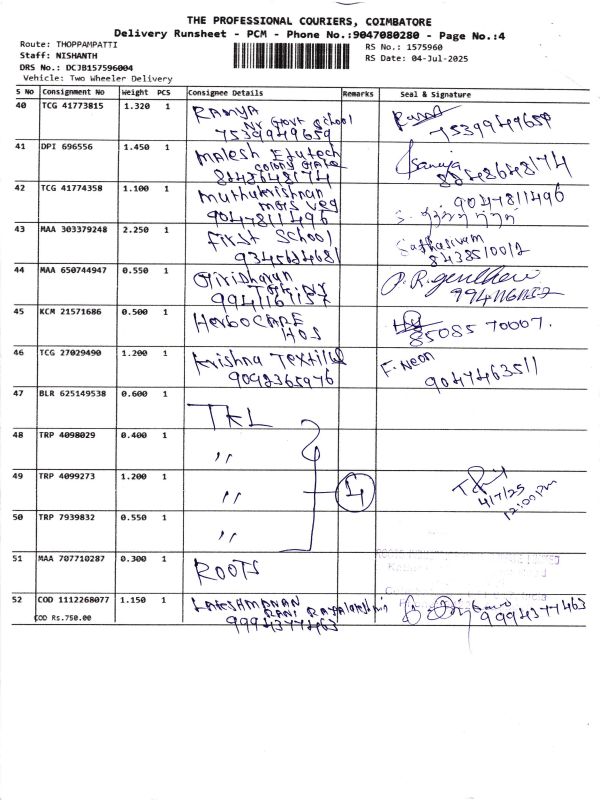 THE PROFESSIONAL COURIERS, COIMBATORE
Delivery Runsheet - PCM - Phone No.:9047080280 - Page No.:4
Route: THOPPAMPATTI
RS No.: 1575960
Staff: NISHANTH
RS Date: 04-Jul-2025
DRS No.: DCJB157596004
Vehicle: Two Wheeler Delivery
S No Consignment No Weight PCS Consignee Details Remarks Seal & Signature
40 TCG 41773815 1.320 1 RAMYA
Nr Govt School
7539949659 7539949659
41 DPI 696556 1.450 1 Malesh Edutech
colony GATE
8848648174 Sanuja 8848648174
42 TCG 41774358 1.100 1 Muthukrishnan
mars veg
9047811496 9047811496
43 MAA 303379248 2.250 1 First School
9345624681 Sathasivam
8438510012
44 MAA 650744947 0.550 1 Giridharan
9941161157 9941161152
45 KCM 21571686 0.500 1 HerboCARE
HOS 85085 70007.
46 TCG 27029490 1.200 1 Krishna Textiles
9092365976 F. Neon
9047463511
47 BLR 625149538 0.600 1 TKL
48 TRP 4098029 0.400 1 ,,
49 TRP 4099273 1.200 1 ,, 4
4/7/25
12:00 pm
50 TRP 7939832 0.550 1 ,,
51 MAA 707710287 0.300 1 ROOTS
52 COD 1112268077 1.150 1 LAKSHMANAN
RANI Rajalakshmi
9994377463 9994377463
COD Rs.750.00